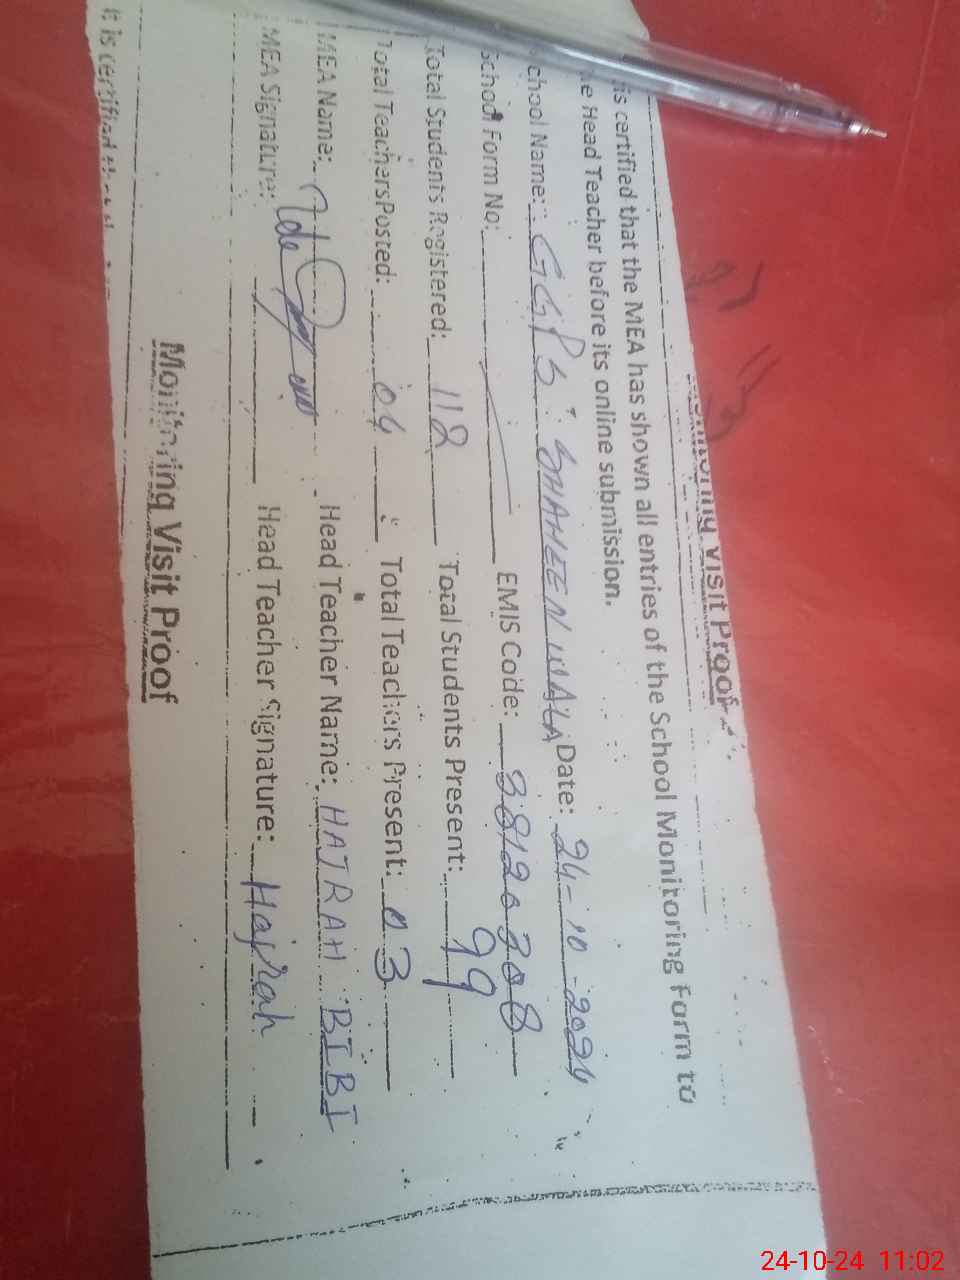 Monitoring Visit Proof
is certified that the MEA has shown all entries of the School Monitoring Form to
he Head Teacher before its online submission.
chool Name: GGPS SHAHEEN WALA Date: 24-10-2024
School Form No: EMIS Code: 38120308
Total Students Registered: 112 Total Students Present: 99
Total Teachers Posted: 04 Total Teachers Present: 03
MEA Name: Head Teacher Name: HAJRAH BIBI
MEA Signature: Head Teacher Signature: Hajrah
Monitoring Visit Proof
It is certified that
24-10-24 11:02